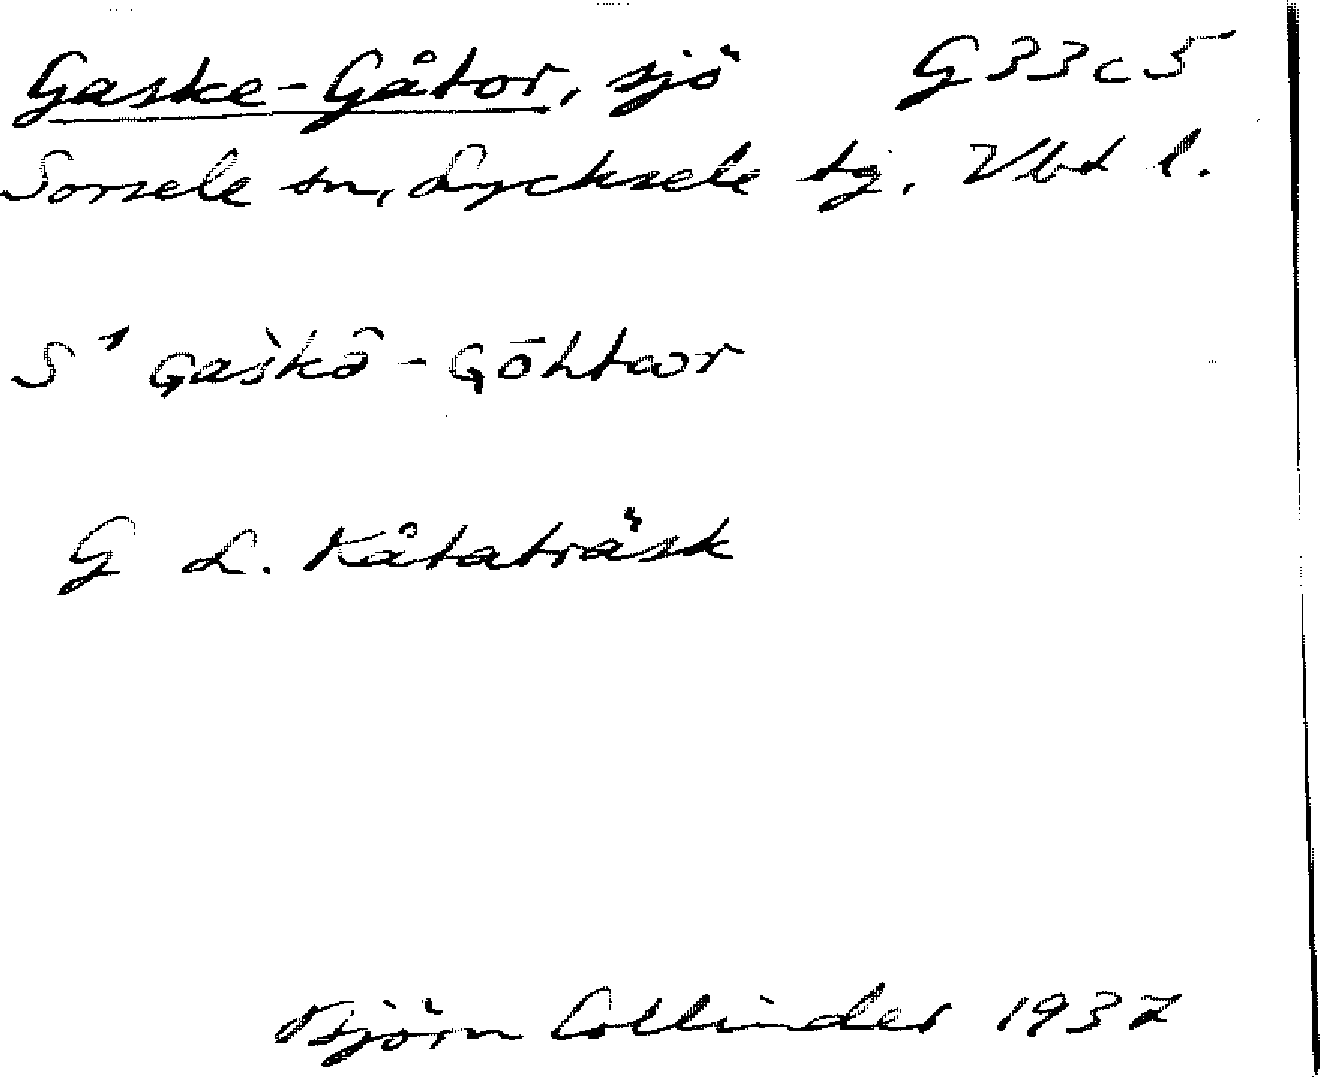 Gaske-Gåtor, sjö G33c5
Sorsele sn, Lycksele tg. Vbt l.
S¹ Gaskô-Gōhtȯr
G L. Kåtaträsk
Björn Collinder 1937